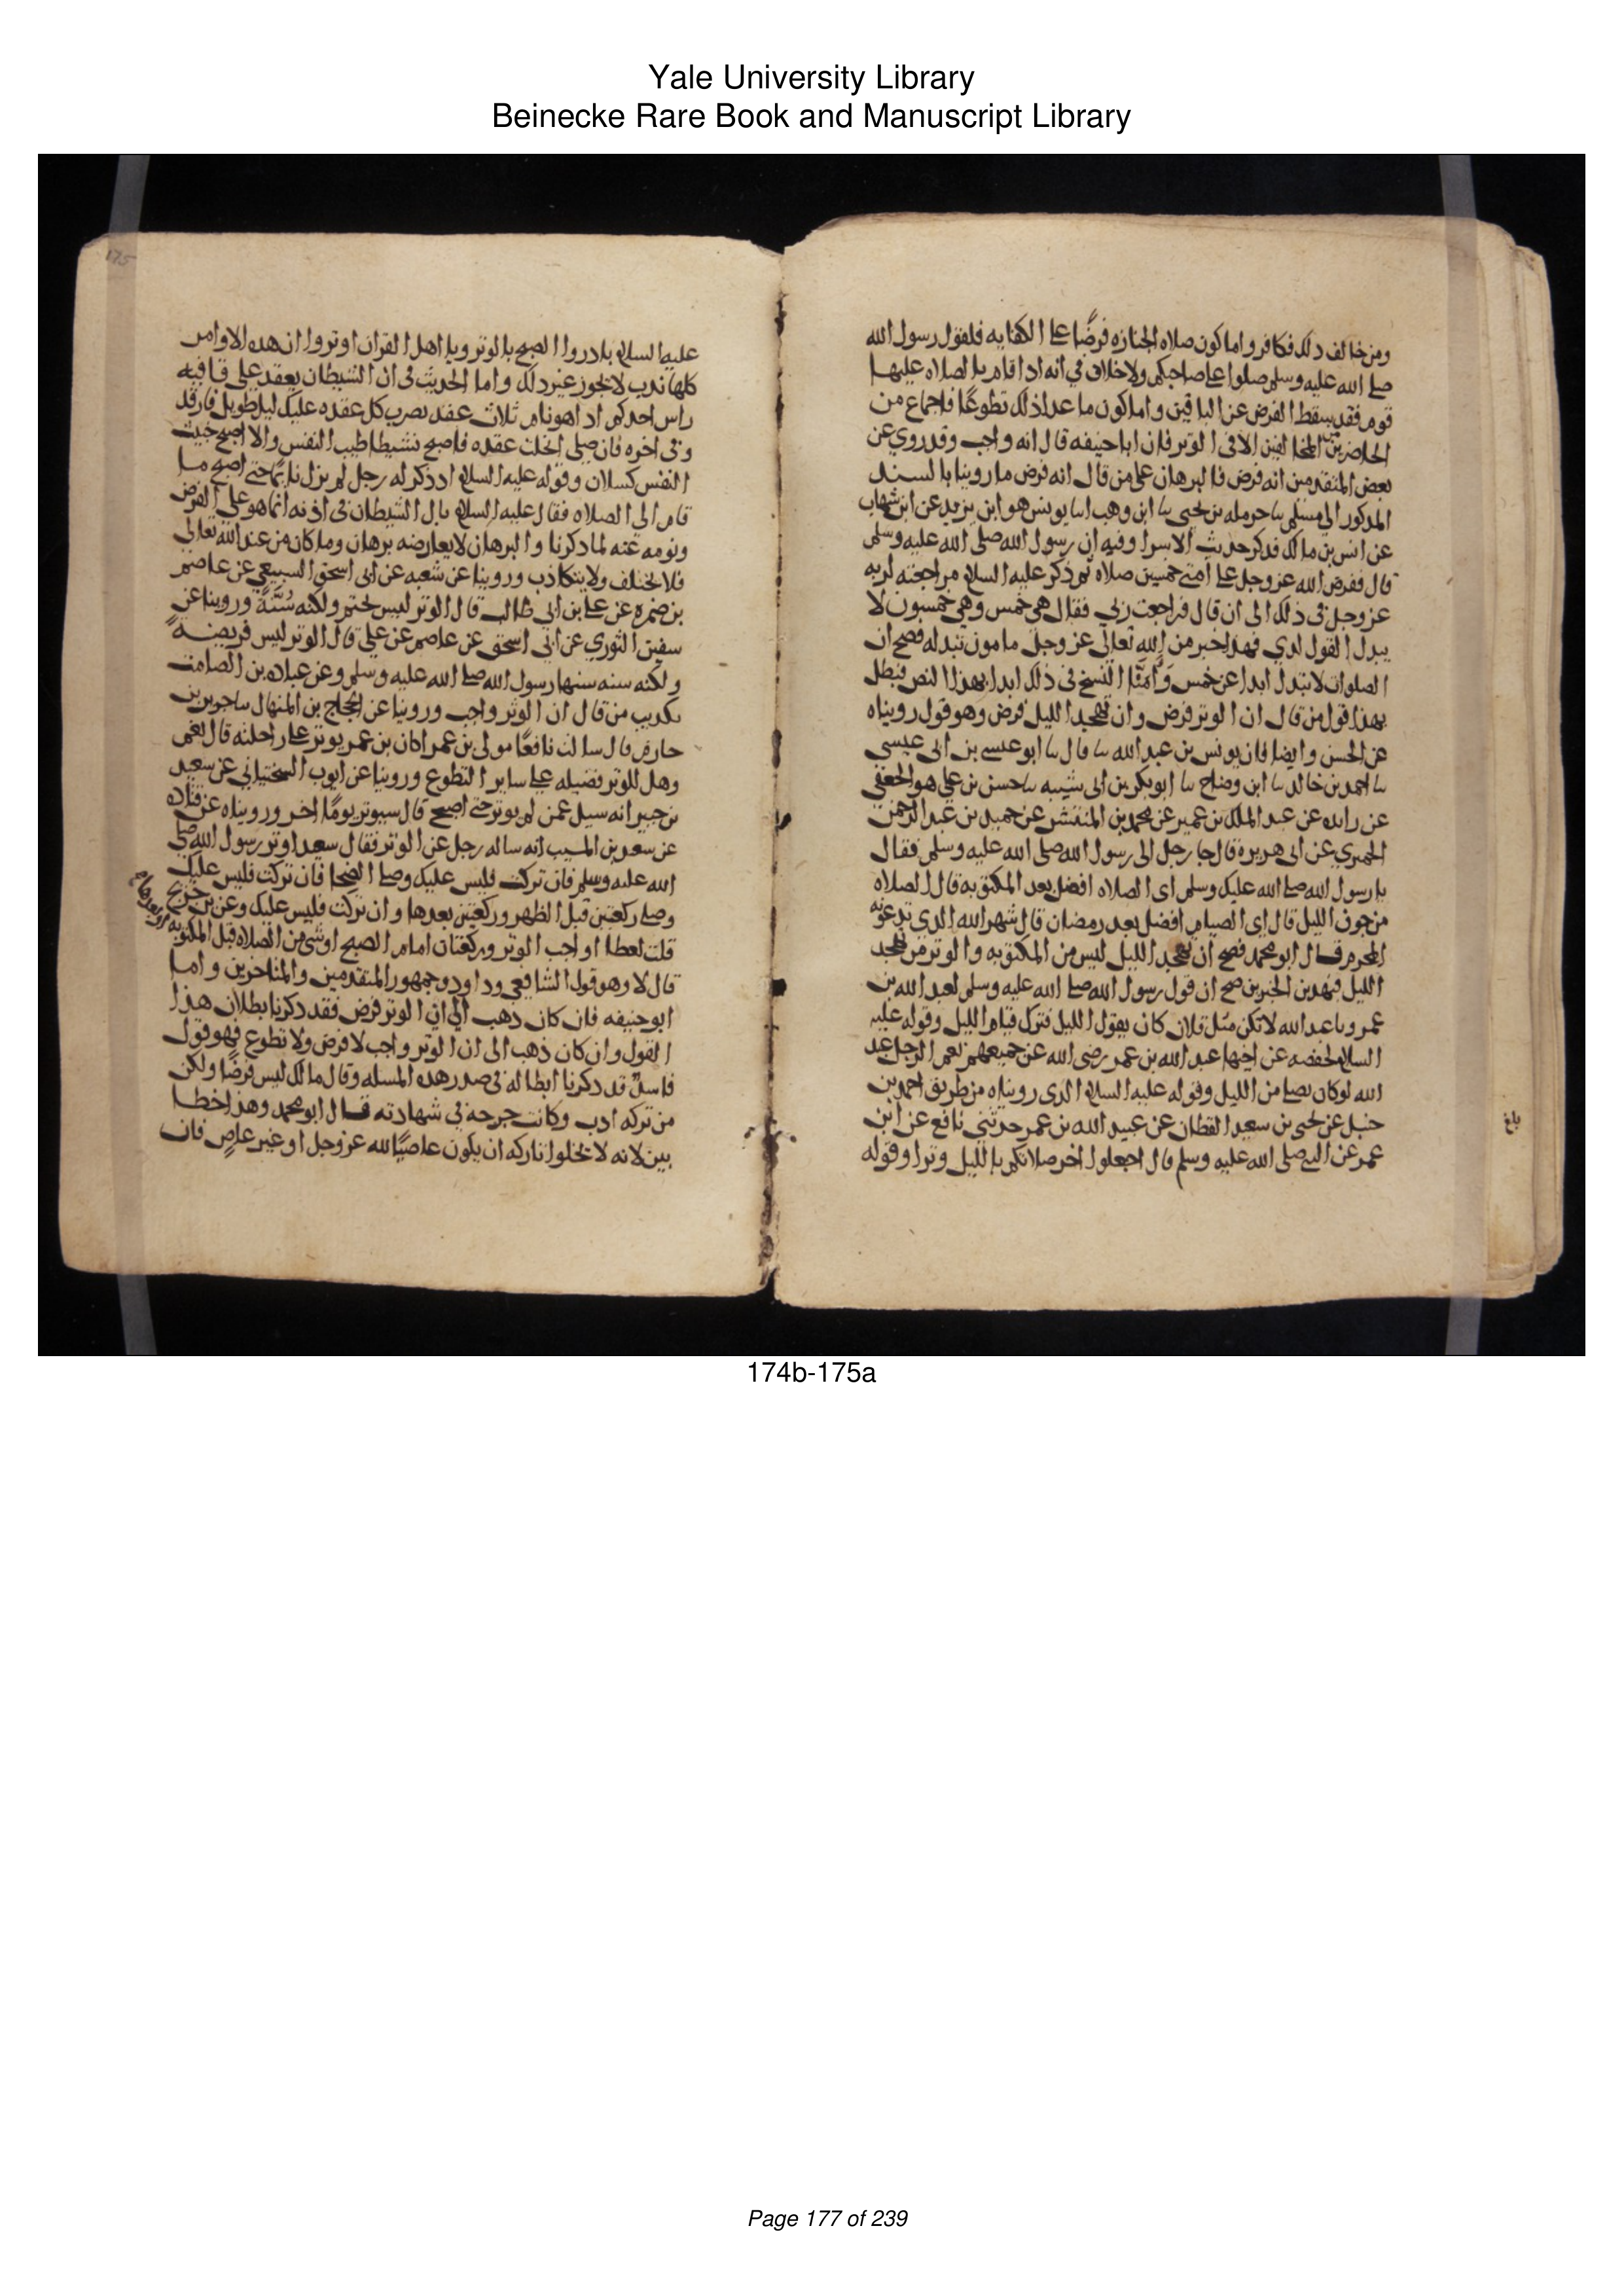 Yale University Library
Beinecke Rare Book and Manuscript Library
ومن خالف ذلك فكافر واما كون صلاه الجنازه فرضًا على الكفايه فلقول رسول الله
صلى الله عليه وسلم صلوا على صاحبكم ولا خلاف في انه اذا قام بالصلاه عليها
قوم فقد يسقط الفرض عن الباقين واما كون ما عدا ذلك تطوعًا فاجماع من
الحاضرين المخالفين الا فى الوتر فان ابا حنيفه قال انه واجب وقد روي عن
بعض المتقدمين انه فرض فالبرهان على من قال انه فرض ما روينا بالسند
المذكور الى مسلم ىا حرمله بن يحيى ىا ابن وهب اىا يونس هو ابن يزيد عن ابن شهاب
عن انس بن مالك فذكر حديث الاسرا وفيه ان رسول الله صلى الله عليه وسلم
قال ففرض الله عز وجل على امتى خمسين صلاه ثم ذكر عليه السلام مراجعته لربه
عز وجل فى ذلك الى ان قال فراجعت ربي فقال هي خمس وهي خمسون لا
يبدل القول لدي فهذا خبر من الله تعالى عز وجل مامون تبدله فصح ان
الصلوات لا تبدل ابدا عن خمس وَاَمِنَّا النسخ فى ذلك ابدا بهذا النص فبطل
بهذا قول من قال ان الوتر فرض وان تهجد الليل فرض وهو قول رويناه
عن الحسن وايضا فان يونس بن عبد الله ىا قال ىا ابو عيسى بن ابى عيسى
ىا احمد بن خالد ىا ابن وضاح ىا ابو بكر بن ابى شيبه ىا حسن بن على هو الجعفي
عن زايده عن عبد الملك بن عمير عن محمد بن المنتشر عن حميد بن عبد الرحمن
الحميري عن ابى هريرة قال جا رجل الى رسول الله صلى الله عليه وسلم فقال
يا رسول الله صلى الله عليك وسلم اى الصلاه افضل بعد المكتوبه قال الصلاه
من جوف الليل قال اي الصيام افضل بعد رمضان قال شهر الله الذي تدعونه
المحرم قال ابو محمد فصح ان تهجد الليل ليس من المكتوبه والوتر من تهجد
الليل فبهذين الخبرين صح ان قول رسول الله صلى الله عليه وسلم لعبد الله بن
عمرو يا عبد الله لا تكن مثل فلان كان يقول الليل فترك قيام الليل وقوله عليه
السلام لحفصه عن اخيها عبد الله بن عمر رضى الله عن جميعهم نعم الرجل عبد
الله لو كان يصلي من الليل وقوله عليه السلام الذى رويناه من طريق احمد بن
حنبل عن يحيى بن سعيد القطان عن عبيد الله بن عمر حدثني نافع عن ابن
عمر عن النبي صلى الله عليه وسلم قال اجعلوا اخر صلاتكم بالليل وترا وقوله
بلغ
175
عليه السلام بادروا الصبح بالوتر ويا اهل القران اوتروا ان هذه الاوامر
كلها ندب لا يجوز غير ذلك واما الحديث فى ان الشيطان يعقد على قافيه
راس احدكم اذا هو نام ثلاث عقد يضرب كل عقده عليك ليل طويل فارقد
وفى اخره فان صلى انحلت عقده فاصبح نشيطا طيب النفس والا اصبح خبيث
النفس كسلان وقوله عليه السلام اذ ذكر له رجل لم يزل نايمًا حتى اصبح ما
قام الى الصلاه فقال عليه السلام بال الشيطان فى اذنه انما هو على الفرض
ونومه عنه لما ذكرنا والبرهان لا يعارضه برهان وما كان من عند الله تعالى
فلا يختلف ولا يتكاذب وروينا عن شعبه عن ابى اسحق السبيعي عن عاصم
بن ضمره عن على بن ابى طالب قال الوتر ليس بحتم ولكنه سُنَّةٌ وروينا عن
سفين الثوري عن ابى اسحق عن عاصم عن على قال الوتر ليس فريضةً
ولكنه سنه سنها رسول الله صلى الله عليه وسلم وعن عباده بن الصامت
تكذيب من قال ان الوتر واجب وروينا عن الحجاج بن المنهال ىا جرير بن
حازم قال سالت نافعًا مولى بن عمر اكان بن عمر يوتر على راحلته قال نعم
وهل للوتر فضيله على ساير التطوع وروينا عن ايوب السختياني عن سعيد
بن جبير انه سيل عمن لم يوتر حتى اصبح قال سيوتر يومًا اخر ورويناه عن قتاده
عن سعيد بن المسيب انه ساله رجل عن الوتر فقال سعيد اوتر رسول الله صلى
الله عليه وسلم فان تركت فليس عليك وصلى الضحا فان تركت فليس عليك
وصلى ركعتين قبل الظهر وركعتين بعدها وان تركت فليس عليك وعن بن جريج
قلت لعطا اواجب الوتر وركعتان امام الصبح او شى من الصلاه قبل المكتوبه
قال لا وهو قول الشافعي وداود وجمهور المتقدمين والمتاخرين واما
ابو حنيفه فان كان ذهب الى ان الوتر فرض فقد ذكرنا بطلان هذا
القول وان كان ذهب الى ان الوتر واجب لا فرض ولا تطوع فهو قول
فاسدٌ قد ذكرنا ابطاله فى صدر هذه المسله وقال مالك ليس فرضًا ولكن
من تركه ادب وكانت جرحه في شهادته قال ابو محمد وهذا خطا
بين لانه لا يخلوا تاركه ان يكون عاصيًا لله عز وجل او غير عاصٍ فان
174b-175a
Page 177 of 239